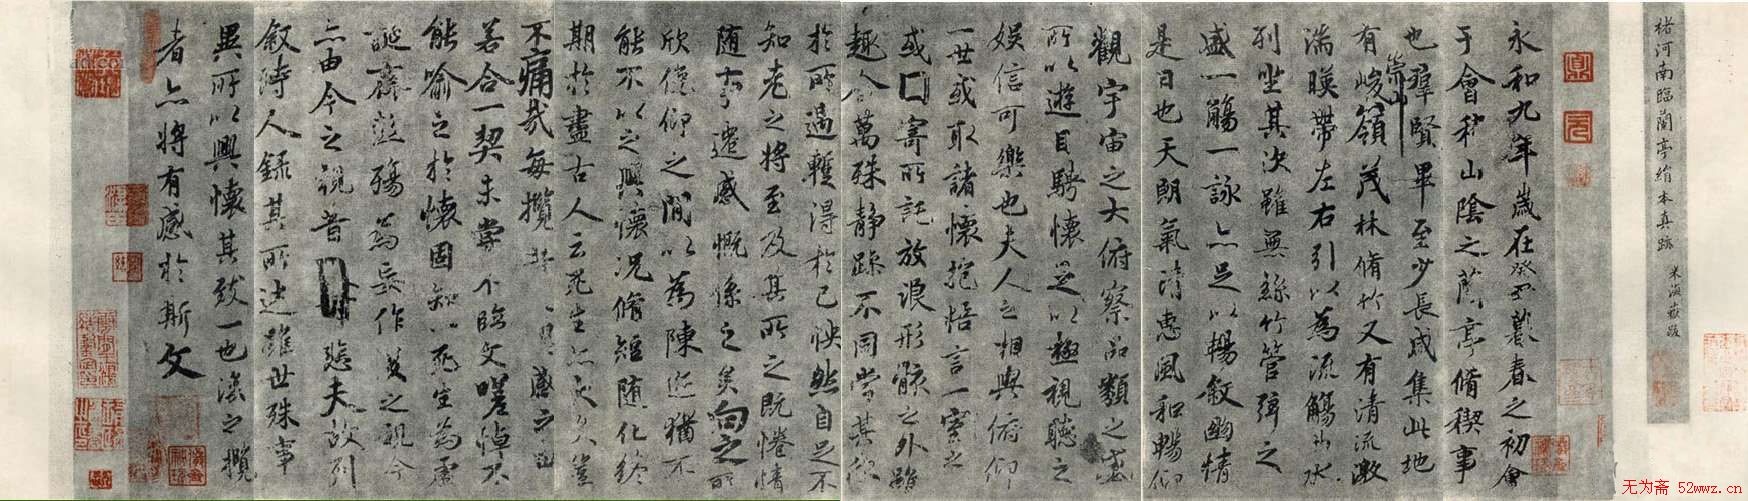 褚河南臨蘭亭絹本真跡 米海嶽跋
永和九年歲在癸丑暮春之初會
于會稽山陰之蘭亭脩稧事
也羣賢畢至少長咸集此地
有崇山峻嶺茂林脩竹又有清流激
湍暎帶左右引以為流觴曲水
列坐其次雖無絲竹管弦之
盛一觴一詠亦足以暢敘幽情
是日也天朗氣清惠風和暢仰
觀宇宙之大俯察品類之盛
所以遊目騁懷足以極視聽之
娛信可樂也夫人之相與俯仰
一世或取諸懷抱悟言一室之
或寄所託放浪形骸之外雖
趣舍萬殊靜躁不同當其欣
於所遇蹔得於己怏然自足不
知老之將至及其所之既惓情
隨事遷感慨係之矣向之所
欣俛仰之間以為陳迹猶不
能不以之興懷況脩短隨化終
期於盡古人云死生亦大矣豈
不痛哉每攬感之由
若合一契未嘗不臨文嗟悼不
能喻之於懷固知一死生為虛
誕齊彭殤為妄作後之視今
亦由今之視昔悲夫故列
敘時人錄其所述雖世殊事
異所以興懷其致一也後之攬
者亦將有感於斯文
无为斋 52wwz.cn